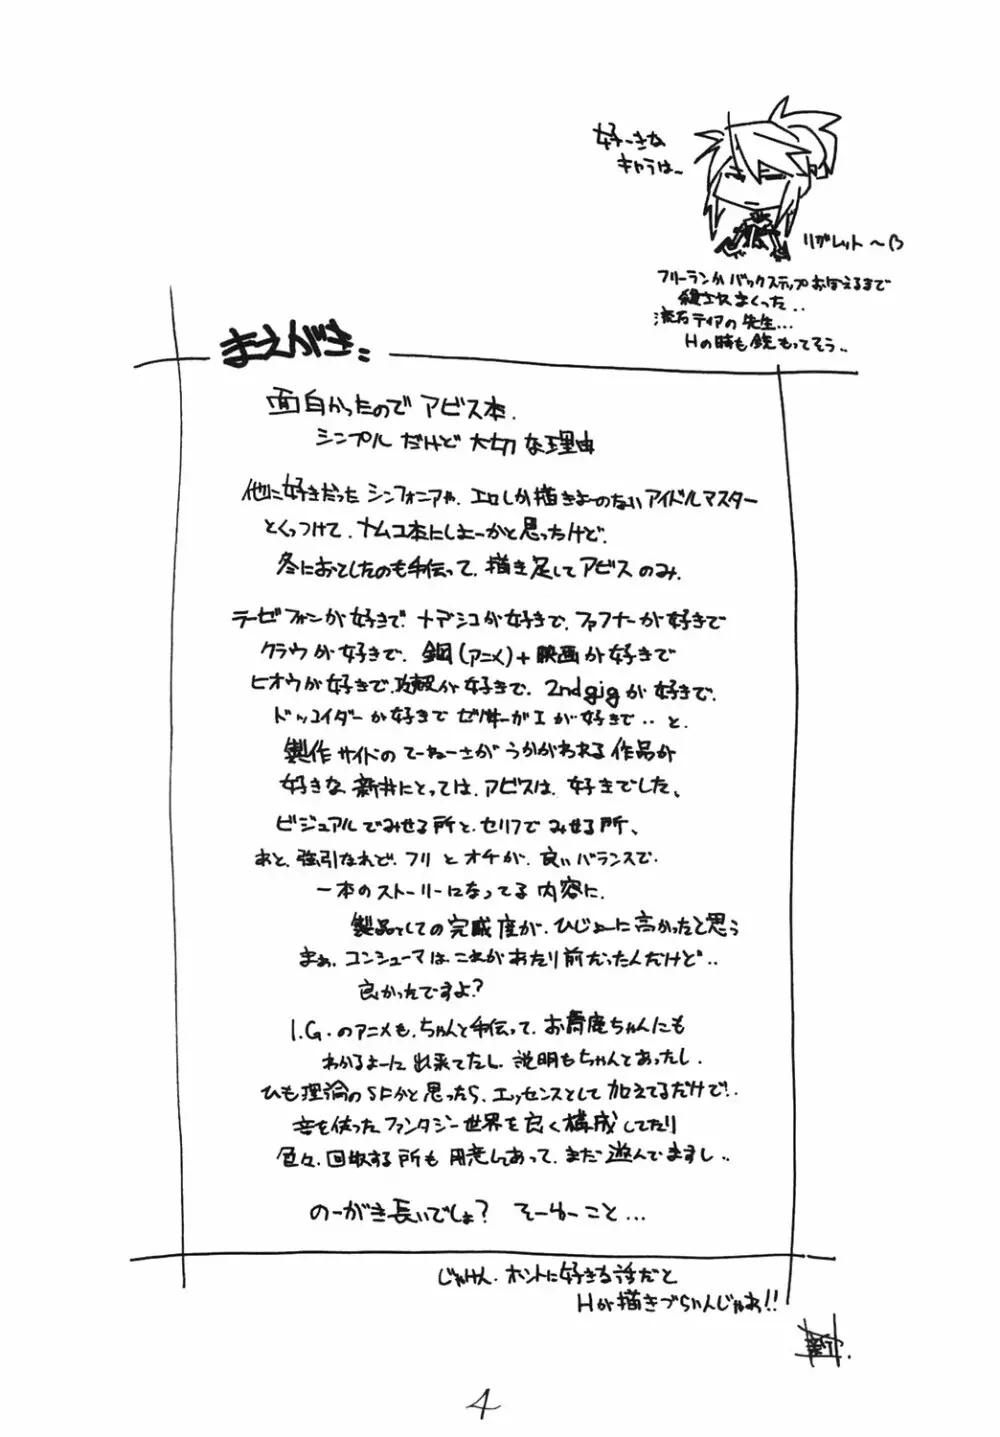 好ーきな
キャラは〜
リグレット〜
フリーランかバックステップおぼえるまで
まくった..
流石ティアの先生...
Hの時も銃もってそう..
まえがき:
面白かったのでアビス本.
シンプルだけど大切な理由
他に好きだったシンフォニアや、エロしか描きよーのないアイドルマスター
とくっつけて、ナムコ本にしよーかと思ったけど.
冬におとしたのも手伝って、描き足してアビスのみ.
ラーゼフォンが好きで、ナデシコが好きで、ファフナーが好きで
クラウが好きで、鋼(アニメ)+映画が好きで
ヒオウが好きで、攻殻が好きで、2ndgigが好きで、
ドッコイダーが好きでゼノサーガIが好きで‥と、
製作サイドのてーねーさがうかがわれる作品が
好きな新井にとっては、アビスは、好きでした、
ビジュアルでみせる所と、セリフでみせる所、
あと、強引なれど、フリとオチが、良いバランスで、
一本のストーリーになってる内容に、
製品としての完成度が、ひじょーに高かったと思う
まぁ、コンシューマはこれがあたり前だったんだけど‥
良かったですよ?
I.G.のアニメも、ちゃんと手伝って、お馬鹿ちゃんにも
わかるよーに出来てたし、説明もちゃんとあったし、
ひも理論のSFかと思ったら、エッセンスとして加えてるだけで‥
音を使ったファンタジー世界を良く構成してたり
色々、回収する所も用意してあって、まだ遊んでますし‥
のーがき長いでしょ? そーゆーこと...
じゃけん、ホントに好きな話だと
Hが描きづらいんじゃぁ!!
4